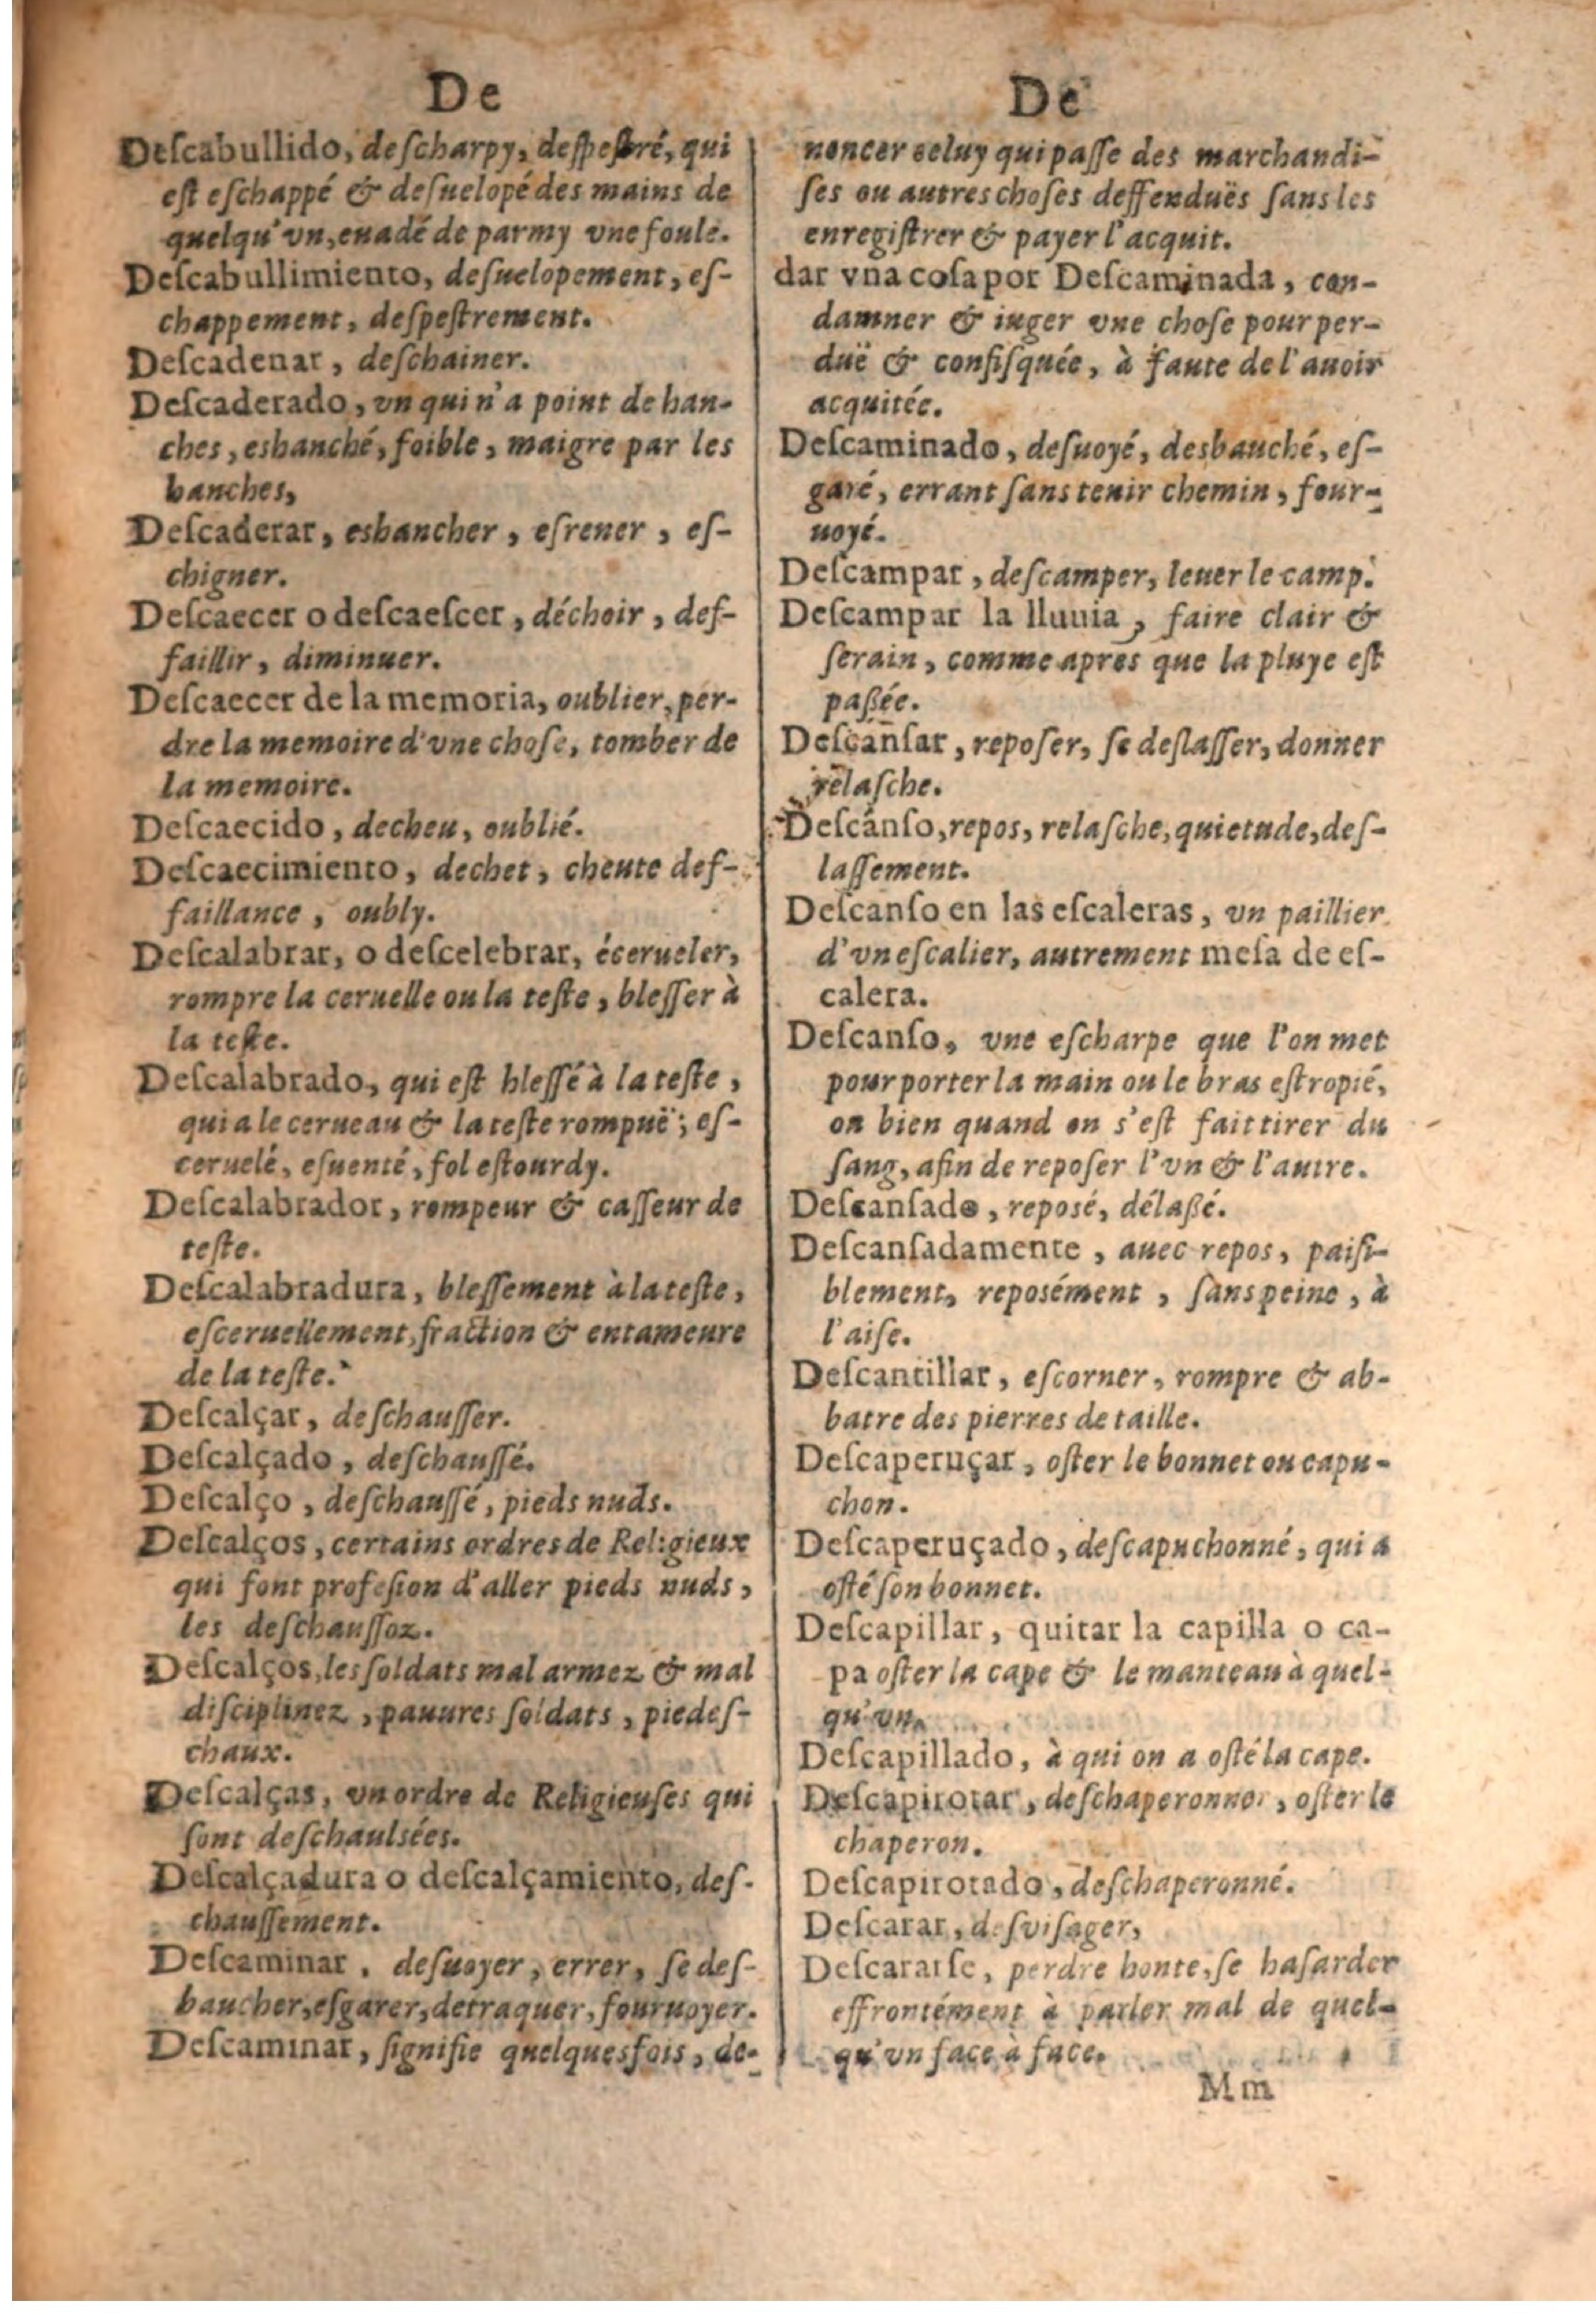 De
Deſcabullido, deſcharpy, deſpeſtré, qui
eſt eſchappé & deſuelopé des mains de
quelqu'vn, euadé de parmy vne foule.
Deſcabullimiento, deſuelopement, eſ-
chappement, deſpeſtrement.
Deſcadenar, deſchainer.
Deſcaderado, vn qui n'a point de han-
ches, eshanché, foible, maigre par les
hanches,
Deſcaderar, eshancher, eſrener, eſ-
chigner.
Deſcaecer o deſcaeſcer, déchoir, def-
faillir, diminuer.
Deſcaecer de la memoria, oublier, per-
dre la memoire d'vne choſe, tomber de
la memoire.
Deſcaecido, decheu, oublié.
Deſcaecimiento, dechet, cheute def-
faillance, oubly.
Deſcalabrar, o deſcelebrar, écerueler,
rompre la ceruelle ou la teſte, bleſſer à
la teſte.
Deſcalabrado, qui eſt bleſſé à la teſte,
qui a le cerueau & la teſte rompuë; eſ-
ceruelé, eſuenté, fol eſtourdy.
Deſcalabrador, rompeur & caſſeur de
teſte.
Deſcalabradura, bleſſement à la teſte,
eſceruellement, fraction & entameure
de la teſte.
Deſcalçar, deſchauſſer.
Deſcalçado, deſchauſſé.
Deſcalço, deſchauſſé, pieds nuds.
Deſcalços, certains ordres de Religieux
qui font profeſion d'aller pieds nuds,
les deſchauſſoz.
Deſcalços, les ſoldats mal armez & mal
diſciplinez, pauures ſoldats, piedeſ-
chaux.
Deſcalças, vn ordre de Religieuſes qui
ſont deſchaulsées.
Deſcalçadura o deſcalçamiento, deſ-
chauſſement.
Deſcaminar, deſuoyer, errer, ſe deſ-
baucher, eſgarer, detraquer, fouruoyer.
Deſcaminar, ſignifie quelquesfois, de-
De
noncer celuy qui paſſe des marchandi-
ſes ou autres choſes deffenduës ſans les
enregiſtrer & payer l'acquit.
dar vna coſa por Deſcaminada, con-
damner & iuger vne choſe pour per-
duë & confiſquée, à faute de l'auoir
acquitée.
Deſcaminado, deſuoyé, desbauché, eſ-
garé, errant ſans tenir chemin, four-
uoyé.
Deſcampar, deſcamper, leuer le camp.
Deſcampar la lluuia, faire clair &
ſerain, comme apres que la pluye eſt
paßée.
Deſcanſar, repoſer, ſe deſlaſſer, donner
relaſche.
Deſcanſo, repos, relaſche, quietude, deſ-
laſſement.
Deſcanſo en las eſcaleras, vn paillier
d'vn eſcalier, autrement meſa de eſ-
calera.
Deſcanſo, vne eſcharpe que l'on met
pour porter la main ou le bras eſtropié,
ou bien quand on s'eſt fait tirer du
ſang, afin de repoſer l'vn & l'autre.
Deſcanſado, repoſé, délaßé.
Deſcanſadamente, auec repos, paiſi-
blement, repoſément, ſans peine, à
l'aiſe.
Deſcantillar, eſcorner, rompre & ab-
batre des pierres de taille.
Deſcaperuçar, oſter le bonnet ou capu-
chon.
Deſcaperuçado, deſcapuchonné, qui a
oſté ſon bonnet.
Deſcapillar, quitar la capilla o ca-
pa oſter la cape & le manteau à quel-
qu'vn.
Deſcapillado, à qui on a oſté la cape.
Deſcapirotar, deſchaperonner, oſter le
chaperon.
Deſcapirotado, deſchaperonné.
Deſcarar, deſviſager,
Deſcararſe, perdre honte, ſe haſarder
effrontément à parler mal de quel-
qu'vn face à face.
Mm